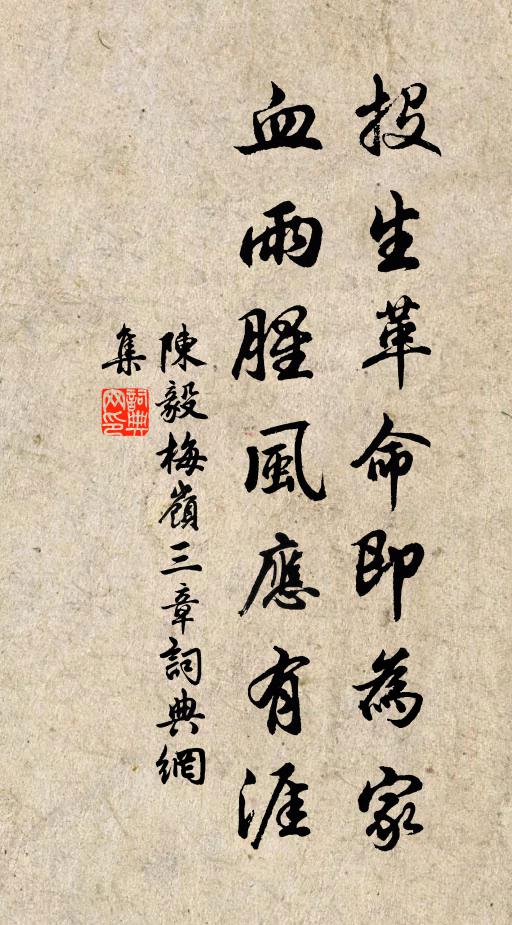 投生革命即為家
血雨腥風應有涯
陳毅梅嶺三章詞典網
集
詞典
網印